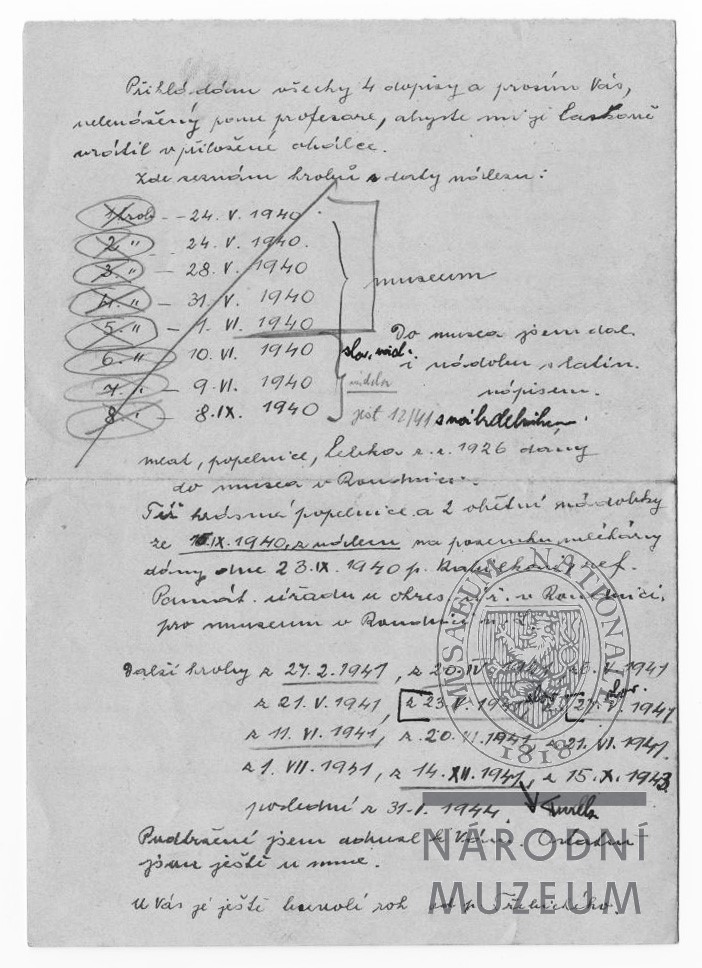 Přikládám všechy 4 dopisy a prosím Vás,
pane profesore, abyste mi je laskavě
vrátil v přiložené obálce.
Zde seznam hrobů s daty nálezu:
1 hrob - 24. V. 1940.
2. " 24. V. 1940.
3. " - 28. V. 1940
4. " - 31. V. 1940
museum
5. " - 1. VI. 1940
Do musea jsem dal
6. " 10. VI. 1940 slov.
i nádobu s latin.
7. " - 9. VI. 1940
nápisem.
8. " - 8. IX. 1940 ještě 12/41 s náhrdelníkem
meat, popelnice, Lebka z r. 1926 dány
do musea v Roudnici.
Též krásná popelnice a 2 obětní nádobky
ze IX. 1940, z nálezu na pozemku mlékárny
dány dne 23. IX. 1940 p. ref.
Památ. úřadu u okres. v Roudnici,
pro museum v Roudnici n. L.
Další hroby z 27. 2. 1941, z 20. IV. 1941, V. 1941
z 21. V. 1941, z 23. V. 1941 slov. 27. V. 1941 slov.
z 11. VI. 1941, z 20. VI. 1941, z 21. VI. 1941.
z 1. VII. 1941, z 14. XII. 1941, z 15. X. 1943.
poslední z 31. I. 1944.
Podtržené jsem odnesl k Vám. Ostatní
jsou ještě u mne.
U Vás je ještě rok od p.
MUSAEUM NATIONALE
1818
NÁRODNÍ
MUZEUM